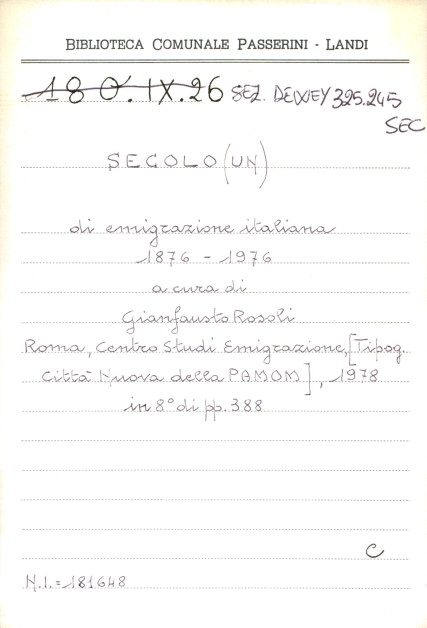 BIBLIOTECA COMUNALE PASSERINI - LANDI
18 O. IX. 26 SEZ. DEWEY 325.245
SEC
SECOLO (UN)
di emigrazione italiana
1876 - 1976
a cura di
Gianfausto Rosoli
Roma, Centro Studi Emigrazione, [Tipog.
Città Nuova della PAMOM], 1978
in 8° di pp. 388
C
N.I. = 181648